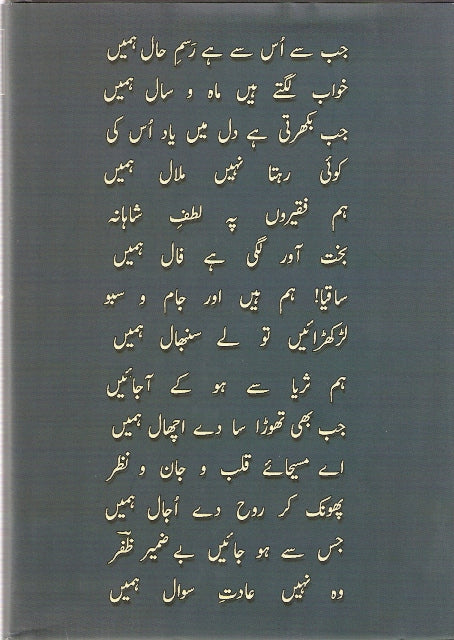 جب سے اُس سے ہے رَسمِ حال ہمیں
خواب لگتے ہیں ماہ و سال ہمیں
جب بکھرتی ہے دل میں یاد اُس کی
کوئی رہتا نہیں ملال ہمیں
ہم فقیروں پہ لطفِ شاہانہ
بخت آور لگی ہے فال ہمیں
ساقیا! ہم ہیں اور جام و سبو
لڑکھڑائیں تو لے سنبھال ہمیں
ہم ثریا سے ہو کے آ جائیں
جب بھی تھوڑا سا دے اچھال ہمیں
اے مسیحائے قلب و جان و نظر
پھونک کر روح دے اُجال ہمیں
جس سے ہو جائیں بے ضمیر ظفرؔ
وہ نہیں عادتِ سوال ہمیں